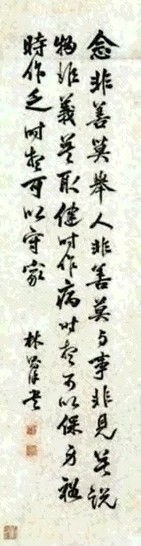 念非善莫舉人非善莫与事非見莫說
物非義莫取健时作病时想可以保身裕
時作乏时想可以守家
林則徐书